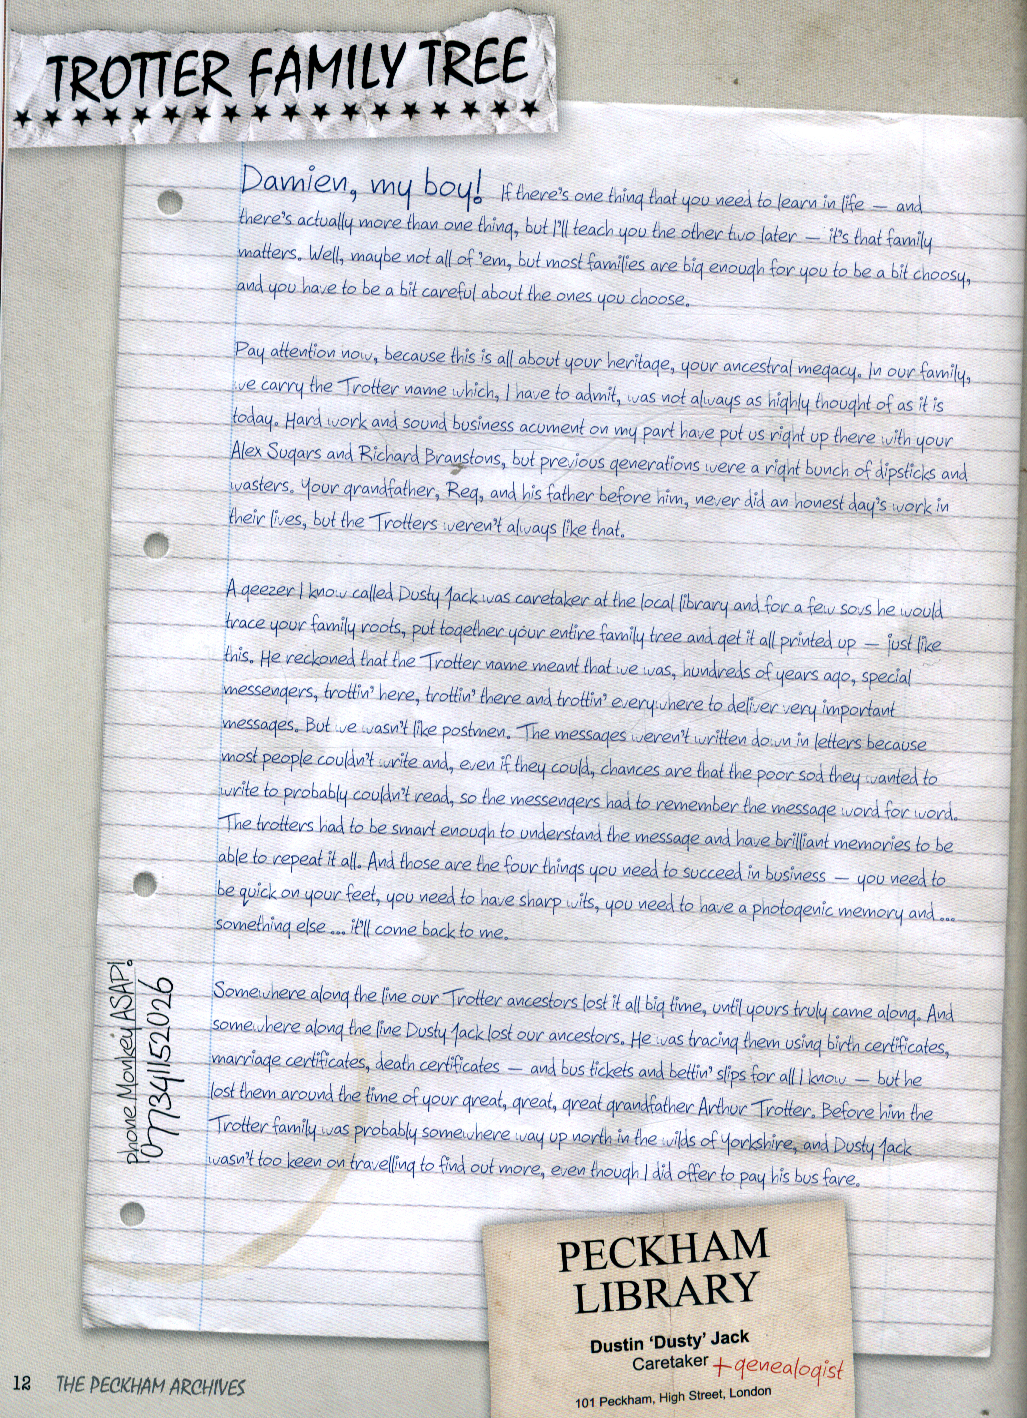 TROTTER FAMILY TREE
Damien, my boy! If there's one thing that you need to learn in life — and
there's actually more than one thing, but I'll teach you the other two later — it's that family
matters. Well, maybe not all of 'em, but most families are big enough for you to be a bit choosy,
and you have to be a bit careful about the ones you choose.
Pay attention now, because this is all about your heritage, your ancestral megacy. In our family,
we carry the Trotter name which, I have to admit, was not always as highly thought of as it is
today. Hard work and sound business acument on my part have put us right up there with your
Alex Sugars and Richard Branstons, but previous generations were a right bunch of dipsticks and
wasters. Your grandfather, Reg, and his father before him, never did an honest day's work in
their lives, but the Trotters weren't always like that.
A geezer I know called Dusty Jack was caretaker at the local library and for a few sovs he would
trace your family roots, put together your entire family tree and get it all printed up — just like
this. He reckoned that the Trotter name meant that we was, hundreds of years ago, special
messengers, trottin' here, trottin' there and trottin' everywhere to deliver very important
messages. But we wasn't like postmen. The messages weren't written down in letters because
most people couldn't write and, even if they could, chances are that the poor sod they wanted to
write to probably couldn't read, so the messengers had to remember the message word for word.
The trotters had to be smart enough to understand the message and have brilliant memories to be
able to repeat it all. And those are the four things you need to succeed in business — you need to
be quick on your feet, you need to have sharp wits, you need to have a photogenic memory and ...
something else ... it'll come back to me.
Somewhere along the line our Trotter ancestors lost it all big time, until yours truly came along. And
somewhere along the line Dusty Jack lost our ancestors. He was tracing them using birth certificates,
marriage certificates, death certificates — and bus tickets and bettin' slips for all I know — but he
lost them around the time of your great, great, great grandfather Arthur Trotter. Before him the
Trotter family was probably somewhere way up north in the wilds of Yorkshire, and Dusty Jack
wasn't too keen on travelling to find out more, even though I did offer to pay his bus fare.
phone Monkey ASAP!
077341152026
PECKHAM
LIBRARY
Dustin 'Dusty' Jack
Caretaker + genealogist
101 Peckham, High Street, London
12 THE PECKHAM ARCHIVES